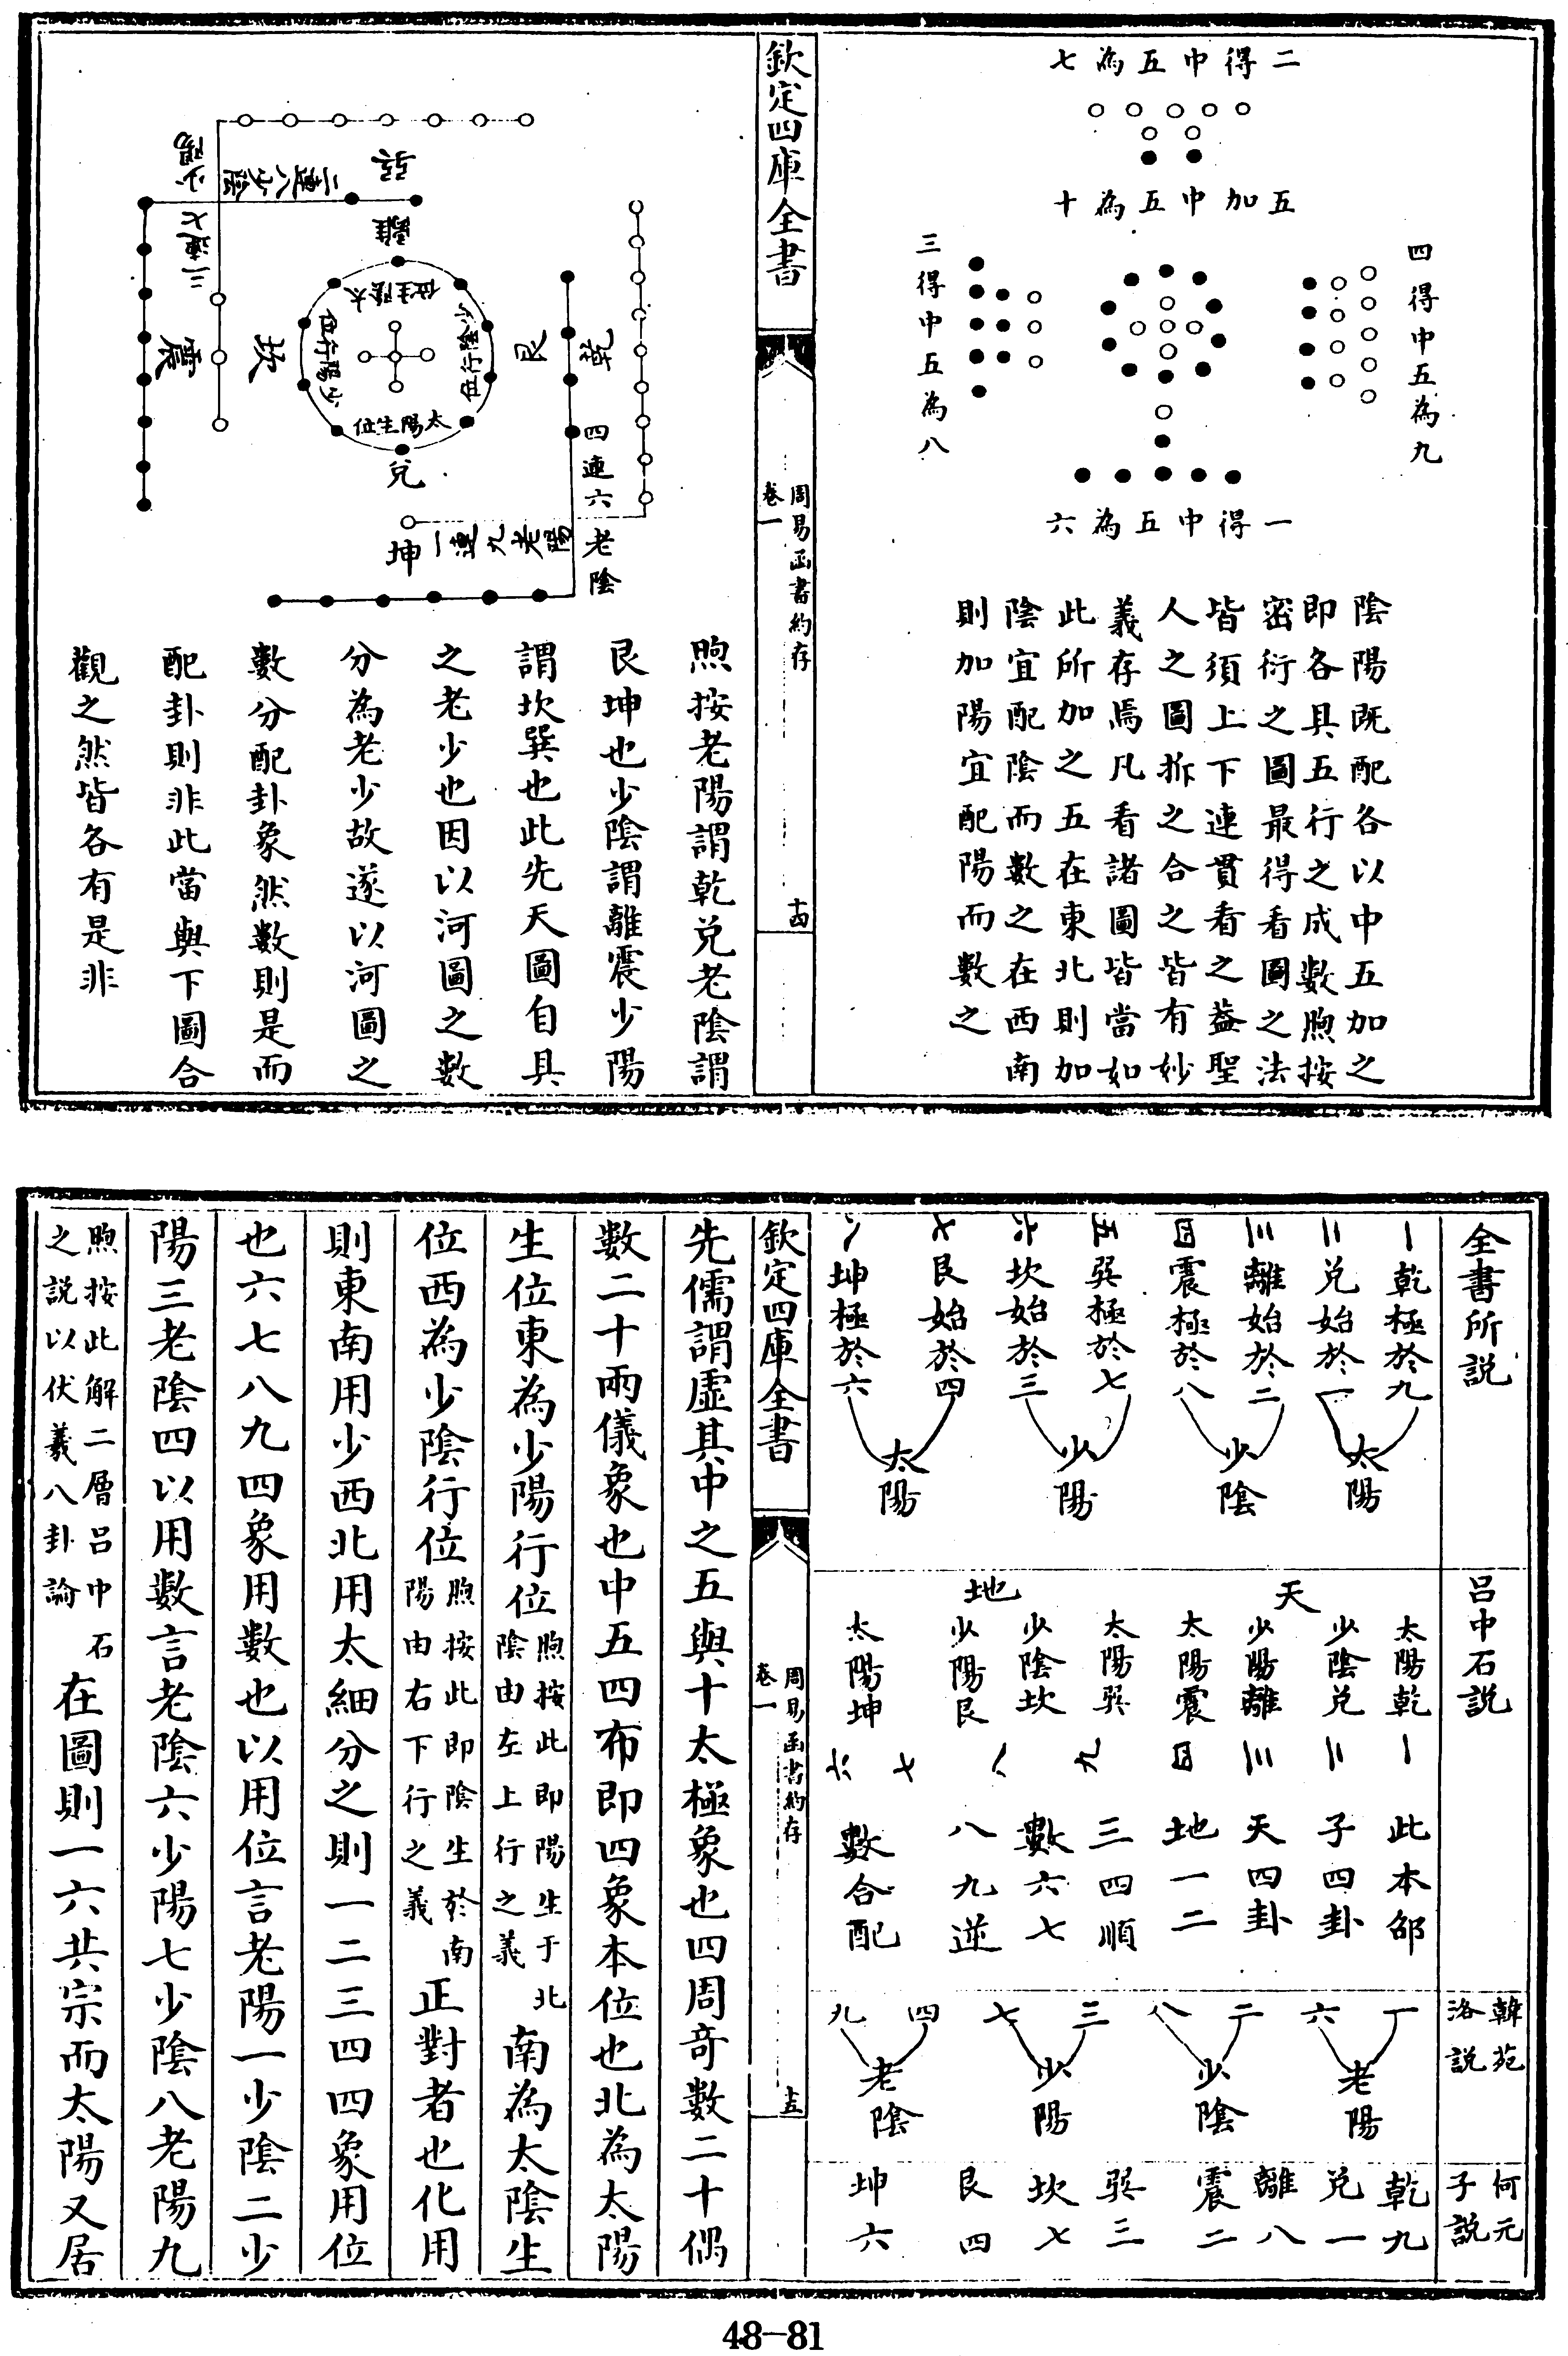 二得中五為七
五加中五為十
四得中五為九
三得中五為八
一得中五為六
陰陽既配各以中五加之
即各具五行之成數煦按
密衍之圖最得看圖之法
皆須上下連貫看之葢聖
人之圖拆之合之皆有妙
義存焉凡看諸圖皆當如
此所加之五在東北則加
陰宜配陰而數之在西南
則加陽宜配陽而數之
欽定四庫全書
周易函書約存
卷一
十四
乾
四連六老陰
艮
巽
二連八少陰
離
太陰生位
少陰行位
少陽行位
太陽生位
坎
震
三連七少陽
兌
坤
一連九老陽
煦按老陽謂乾兌老陰謂
艮坤也少陰謂離震少陽
謂坎巽也此先天圖自具
之老少也因以河圖之數
分為老少故遂以河圖之
數分配卦象然數則是而
配卦則非此當與下圖合
觀之然皆各有是非
全書所說
一乾極於九
二兌始於一
太陽
三離始於二
四震極於八
少陰
五巽極於七
六坎始於三
少陽
七艮始於四
八坤極於六
太陽
呂中石說
天
太陽乾一
少陰兌二
少陽離三
太陽震四
地
太陽巽九
少陰坎八
少陽艮七
太陽坤六
此本邵
子四卦
天四卦
地一二
三四順
數六七
八九逆
數合配
韓苑洛說
一
六
老陽
二
八
少陰
三
七
少陽
四
九
老陰
何元子說
乾九
兌一
離八
震二
巽三
坎七
艮四
坤六
欽定四庫全書
周易函書約存
卷一
十五
先儒謂虛其中之五與十太極象也四周奇數二十偶
數二十兩儀象也中五四布即四象本位也北為太陽
生位東為少陽行位煦按此即陽生于北陰由左上行之義南為太陰生
位西為少陰行位煦按此即陰生於南陽由右下行之義正對者也化用
則東南用少西北用太細分之則一二三四四象用位
也六七八九四象用數也以用位言老陽一少陰二少
陽三老陰四以用數言老陰六少陽七少陰八老陽九
煦按此解二層呂中石之說以伏羲八卦論在圖則一六共宗而太陽又居
48-81